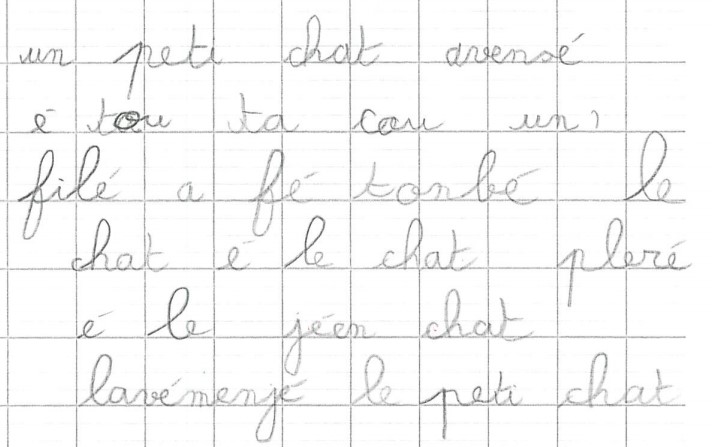 un peti chat avensé
é tou ta cou un
filé a fé tonbé le
chat é le chat pleré
é le jéen chat
lavémenjé le peti chat